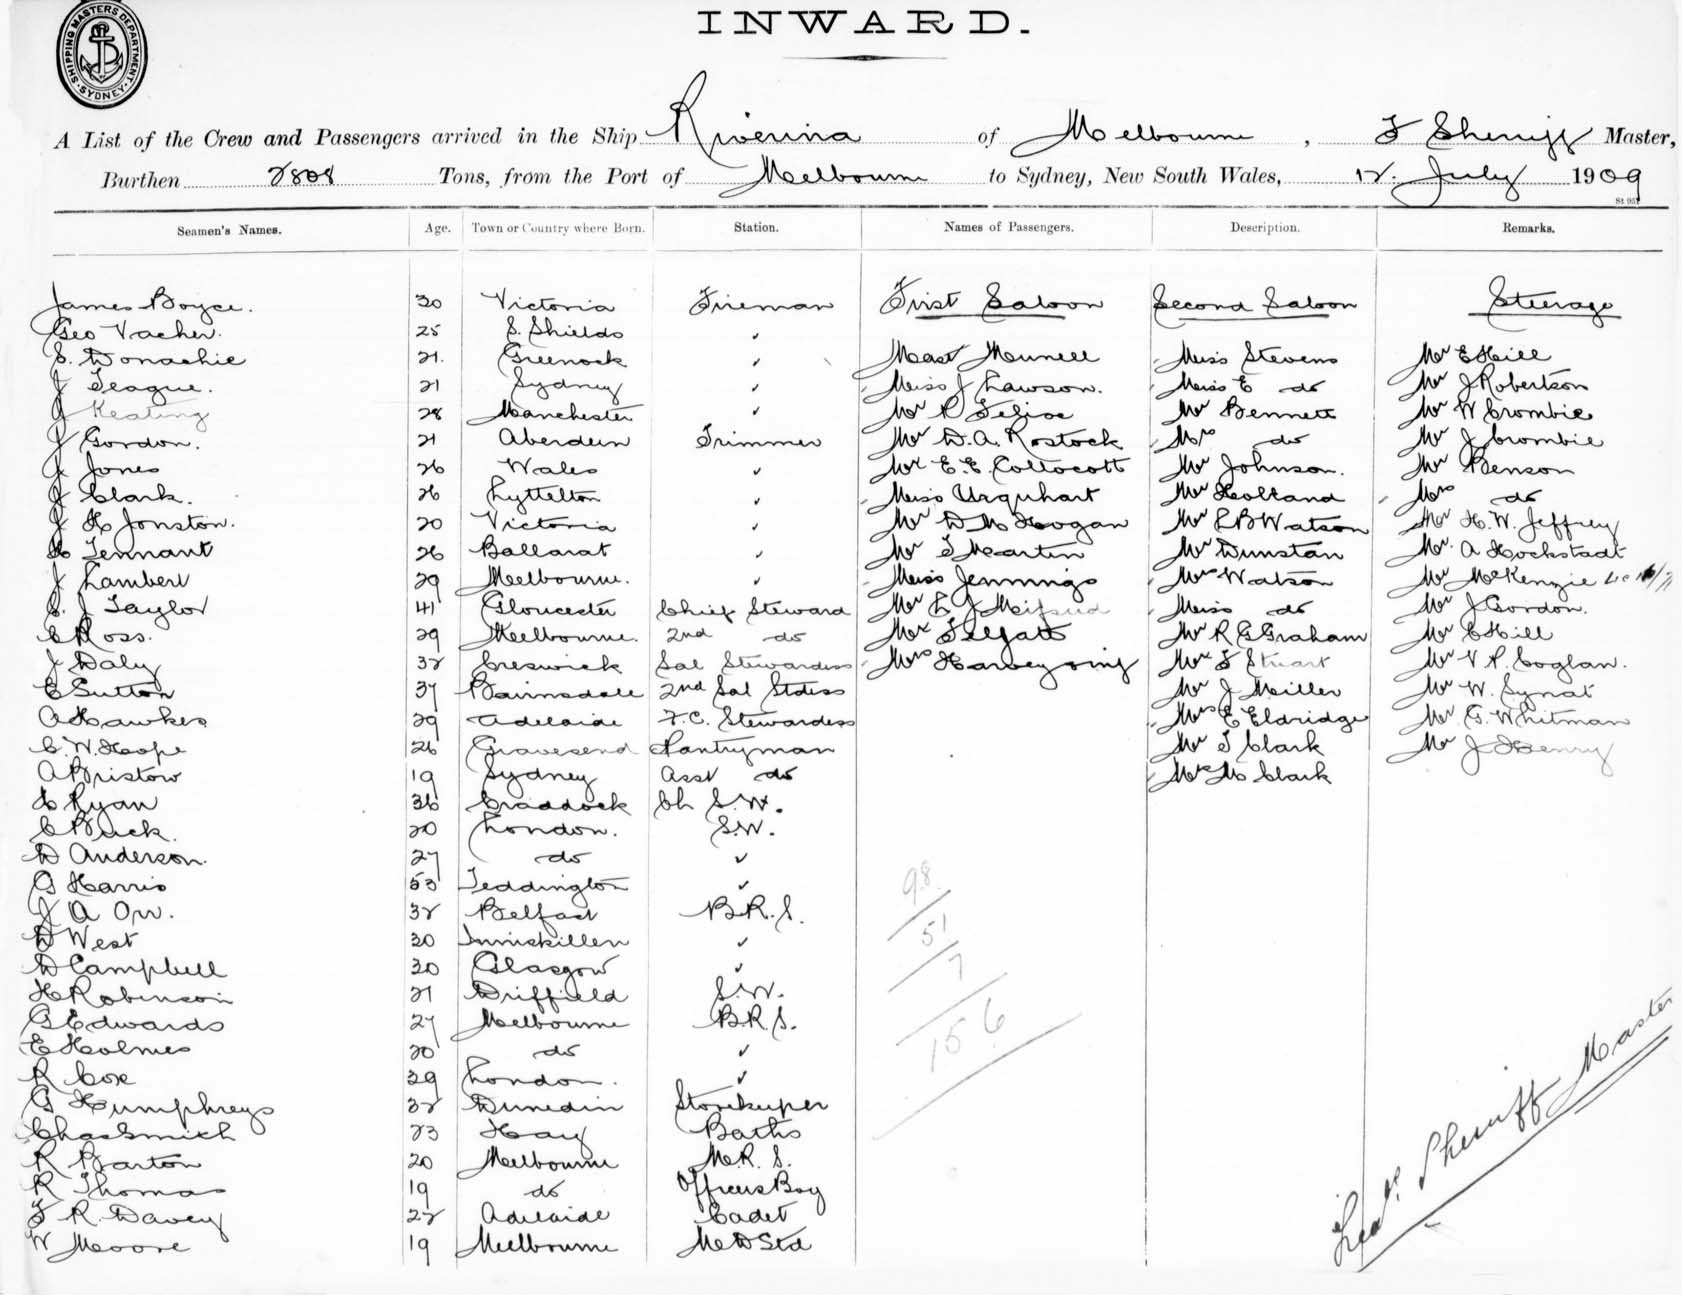 SHIPPING MASTERS DEPARTMENT. SYDNEY.
INWARD.
A List of the Crew and Passengers arrived in the Ship Riverina of Melbourne, F Sherriff Master,
Burthen 2808 Tons, from the Port of Melbourne to Sydney, New South Wales, 12. July 1909
Seamen's Names. Age. Town or Country where Born. Station. Names of Passengers. Description. Remarks.
James Boyce. 30 Victoria Fireman First Saloon Second Saloon Steerage
Geo Vacher. 25 S. Shields ✓
S. Donachie 21. Greenock ✓ Miss Stevens Mr E Hill
J Teague. 21 Sydney ✓ Miss J Lawson. Miss E do Mr J Robertson
J Keating 28 Manchester ✓ Mr Bennett Mr W Crombie
J Gordon. 21 Aberdeen Trimmer Mr D.A. Rostock Mrs do Mr J Crombie
J Jones 26 Wales ✓ Mr E.E. Collocott Mr Johnson. Mr Benson
J Clark. 26 Lyttelton ✓ Miss Urquhart Mr Holland Mrs do
J H Jonston. 20 Victoria ✓ Mr D M Hogan Mr L B Watson Mr H.W. Jeffrey
H Tennant 26 Ballarat ✓ Mr T Martin Mr Dunstan Mr. A Hockstadt
J Lambert 29 Melbourne. ✓ Miss Jennings Mrs Watson Mr McKenzie
S. J Taylor 41 Gloucester Chief Steward Mr L J Mifsud Miss do Mr J Gordon.
C Ross. 29 Melbourne. 2nd do Mr Mr R G Graham Mr C Hill
J Daly 32 Creswick Sal Stewardess Mrs Harvey Mr F Stuart Mr V P. Coglan.
E Sutton 37 Bairnsdale 2nd Sal Stdess Mr J Miller Mr W. Synat
A Hawkes 29 Adelaide F.C. Stewardess Mrs E Eldridge Mr G. Whitman
C.W. Hope 26 Gravesend Pantryman Mr T Clark Mr J Henry
A Bristow 19 Sydney Asst do Mr M Clark
H Ryan 36 Craddock Ch S.W.
C Buck. 20 London. S.W.
D Anderson. 27 do ✓
G Harris 53 Teddington ✓
J A Orr. 32 Belfast B.R.S.
D West 30 Inniskillen ✓
D Campbell 30 Glasgow ✓
H Robinson 21 Driffield S.W.
G Edwards 27 Melbourne B.R.S.
E Holmes 20 do ✓
R Cox 29 London. ✓
G Humphreys 32 Dunedin Storekeeper
Chas Smith 23 Hay Baths
R Barton 20 Melbourne M.R.S.
R Thomas 19 do Officers Boy
F R. Davey 22 Adelaide Cadet
W Moore 19 Melbourne
98
51
7
156
Sherriff Master